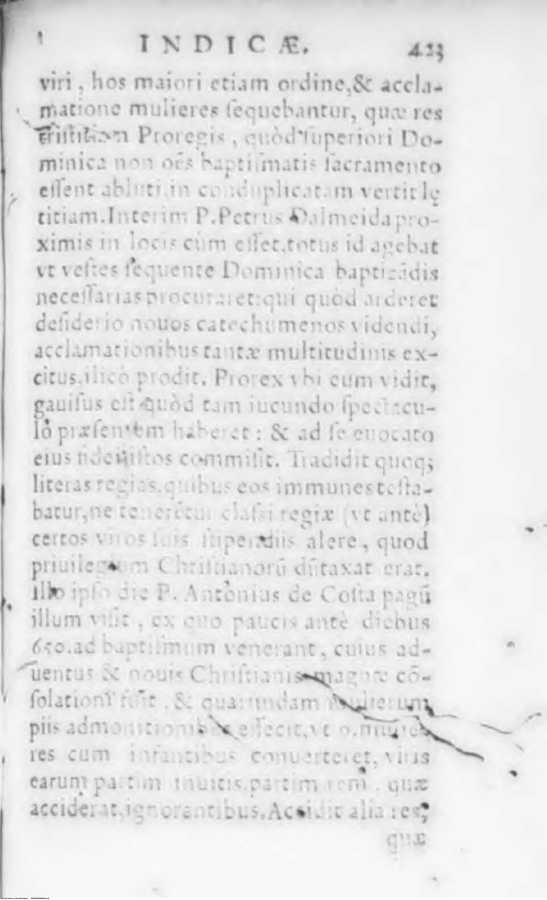 INDICÆ. 423
viri, hos maiori etiam ordine,& accla-
matione mulieres ſequebantur, quæ res
triſtitiam Proregis, quòd ſuperiori Do-
minica non oēs baptiſmatis ſacramento
eſſent abluti.in conduplicatam vertit lę
titiam.Interim P.Petrus Dalmeida pro-
ximis in locis cùm eſſet,totus id agebat
vt veſtes ſequente Dominica baptizādis
neceſſarias procuraret:qui quòd arderet
deſiderio nouos catechumenos videndi,
acclamationibus tantæ multitudinis ex-
citus,ilicò prodit. Prorex vbi eum vidit,
gauiſus eſt quòd tam iucundo ſpectacu-
lo præſentem haberet: & ad ſe euocato
eius fidei iſtos commiſit. Tradidit quoq;
literas regias,quibus eos immunes teſta-
batur,ne tenerētur claſſi regiæ (vt antè)
certos viros ſuis ſtipendiis alere, quod
priuilegium Chriſtianorū dūtaxat erat.
Illo ipſo die P. Antonius de Coſta pagū
illum viſit, ex quo paucis antè diebus
650.ad baptiſmum venerant, cuius ad-
uentus & nouis Chriſtianis magnæ cō-
ſolationi fuit, & quarundam mulierum
piis admonitionibus effecit,vt mulie-
res cum infantibus conuerteret, viris
earum partim inuitis,partim rem, quæ
acciderat,ignorantibus.Accidit alia res,
quæ